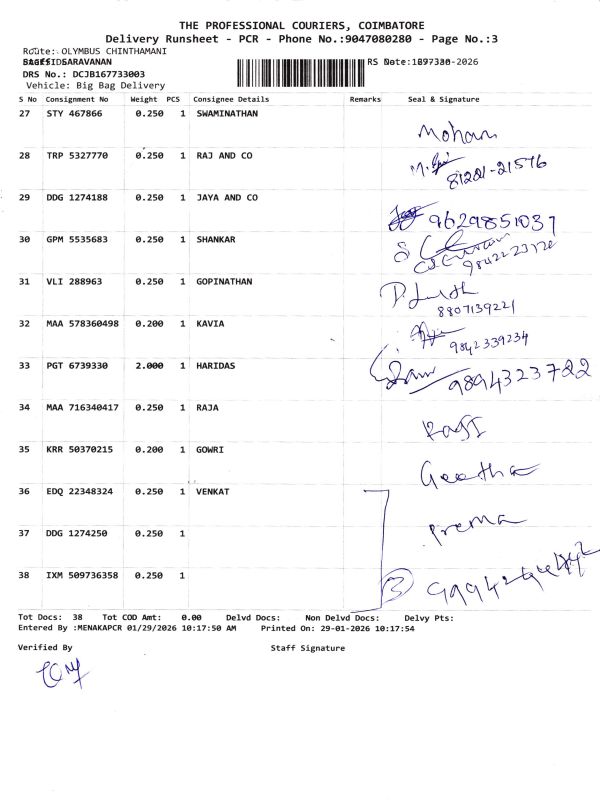 THE PROFESSIONAL COURIERS, COIMBATORE
Delivery Runsheet - PCR - Phone No.:9047080280 - Page No.:3
Route: OLYMBUS CHINTHAMANI
SARAVANAN
DRS No.: DCJB167733003
Vehicle: Big Bag Delivery
S No Consignment No Weight PCS Consignee Details Remarks Seal & Signature
27 STY 467866 0.250 1 SWAMINATHAN
Mohan
28 TRP 5327770 0.250 1 RAJ AND CO
81221-21576
29 DDG 1274188 0.250 1 JAYA AND CO
9629851031
30 GPM 5535683 0.250 1 SHANKAR
31 VLI 288963 0.250 1 GOPINATHAN
8807139221
32 MAA 578360498 0.200 1 KAVIA
9842339234
33 PGT 6739330 2.000 1 HARIDAS
9894323722
34 MAA 716340417 0.250 1 RAJA
35 KRR 50370215 0.200 1 GOWRI
Geetha
36 EDQ 22348324 0.250 1 VENKAT
Prema
37 DDG 1274250 0.250 1
38 IXM 509736358 0.250 1
3
Tot Docs: 38 Tot COD Amt: 0.00 Delvd Docs: Non Delvd Docs: Delvy Pts:
Entered By :MENAKAPCR 01/29/2026 10:17:50 AM Printed On: 29-01-2026 10:17:54
Verified By Staff Signature